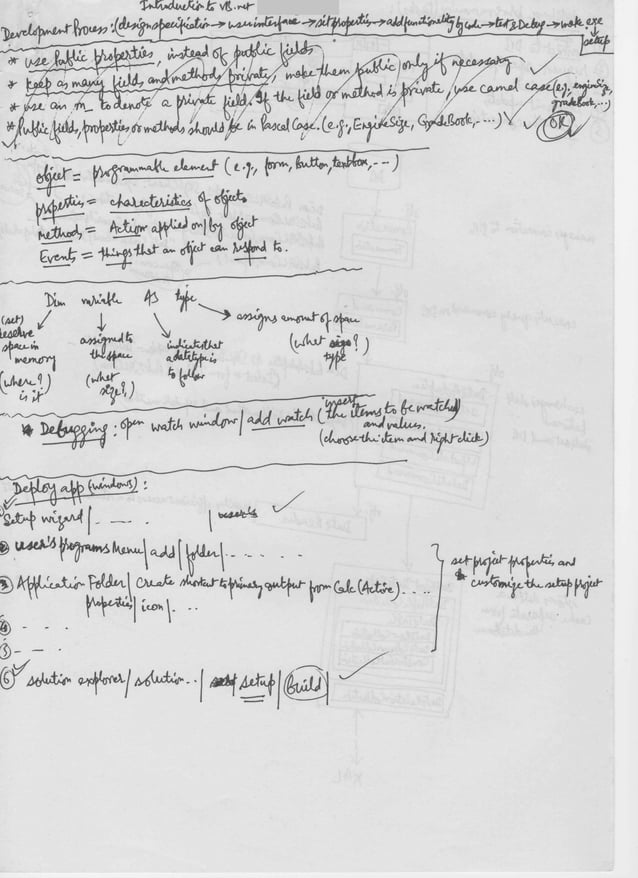 Introduction to VB.net
Development Process: (design specification → user interface → set properties → add functionality by code → test & Debug → make .exe
setup
* use Public properties, instead of public fields
* keep as many fields and methods private, make them public only if necessary ✓
* use an m_ to denote a private field. If the field or method is private, use camel case (e.g., engineSize, gradeBook, ...)
* Public fields, properties or methods should be in Pascal Case. (e.g., EngineSize, GradeBook, ....) ✓ ✓ OK
object = programmable element (e.g., form, button, textbox, ...)
properties = charecteristics of objects
methods = Action applied on/by object
Events = things that an object can respond to.
Dim variable AS type
(set) reserve space in memory (where? is it)
assigned to the space (what size?)
indicates that a datatype is to follow
assigns amount of space (what type?)
* Debugging: open watch window / add watch (insert the items to be watched) and values.
(choose the item and right click)
Deploy app (windows):
① Setup wizard / - - - - / ✓
② user's programs Menu / add / folder / . . . . . .
③ Application Folder / Create shortcut to primary output from Calc (Active) . . . .
properties / icon / . . .
set project properties and customize the setup project
④ - - -
⑤ - - -
⑥ solution explorer / solution .. / setup / Build / ✓
XML